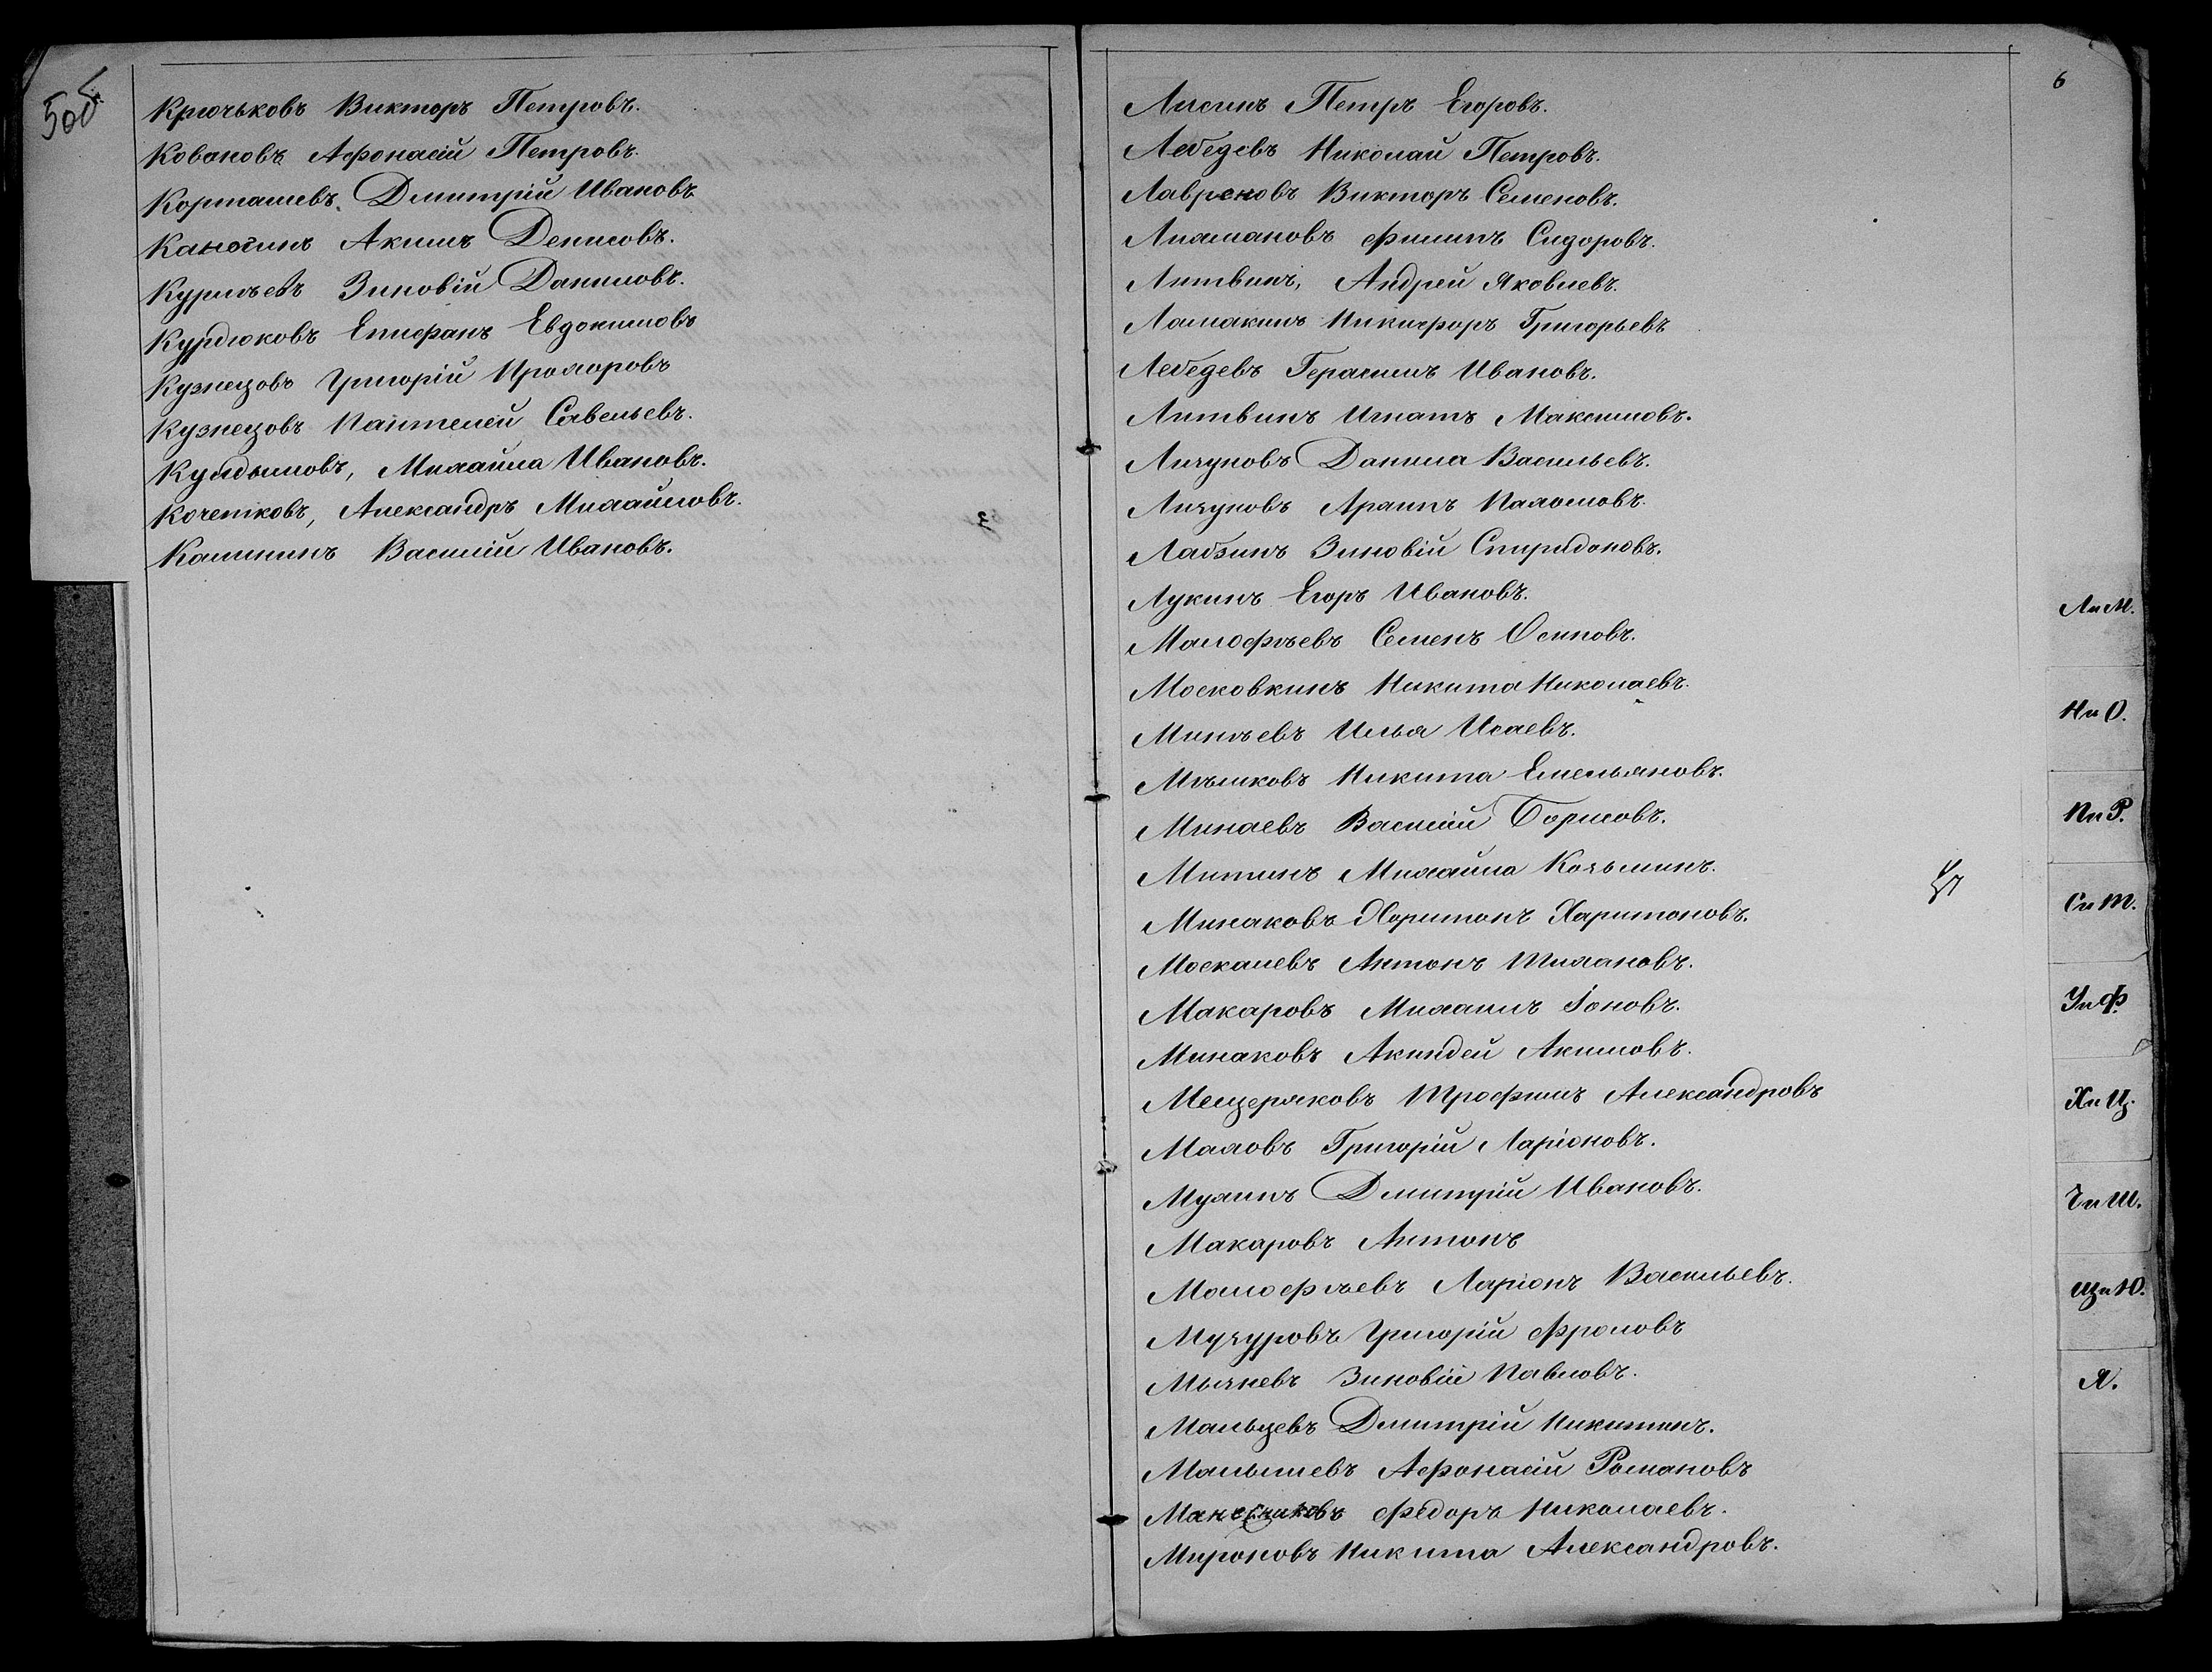 5об.
Крючьковъ Викторъ Петровъ.
Ковановъ Афонасій Петровъ.
Корташевъ, Дмитрій Ивановъ
Канюгинъ Акимъ Денисовъ.
Курилъевъ Зиновій Даниловъ.
Курдюковъ Епифанъ Евдокимовъ
Кузнецовъ Григорій Прохоровъ
Кузнецовъ Пантелей Савельевъ.
Кулдымовъ, Михайла Ивановъ.
Кочетковъ, Александръ Михайловъ.
Калининъ Василій Ивановъ.
6
Лисинъ Петръ Егоровъ.
Лебедевъ Николай Петровъ.
Лавреновъ Викторъ Семеновъ.
Лихмановъ Филипъ Сидоровъ.
Литвинъ, Андрей Яковлевъ.
Ламакинъ Никифоръ Григорьевъ
Лебедевъ Герасимъ Ивановъ.
Литвинъ Игнатъ Максимовъ.
Лизуновъ Данила Васильевъ.
Лизуновъ Архипъ Пахомовъ.
Лабзинъ Зиновій Спиридоновъ.
Лукинъ Егоръ Ивановъ.
Малофѣевъ Семенъ Осиповъ.
Московкинъ Никита Николаевъ.
Минѣевъ Илья Исаевъ.
Мѣшковъ Никита Емельяновъ.
Минаевъ Василій Борисовъ.
Митинъ Михайла Козьминъ.
Минаковъ Харитонъ Харитоновъ.
Москалевъ Антонъ Тихановъ.
Макаровъ Михаилъ Іоновъ.
Минаковъ Акиндей Акимовъ.
Мещеряковъ Трофимъ Александровъ
Маловъ Григорій Ларіоновъ.
Мухинъ Дмитрій Ивановъ.
Макаровъ Антонъ
Малофѣевъ Ларіонъ Васильевъ.
Музуровъ Григорій Фроловъ
Мызневъ Зиновій Павловъ.
Мальцевъ Дмитрій Никитинъ.
Малышевъ Афонасій Романовъ
Федоръ Николаевъ.
Мироновъ Никита Александровъ.
Л и М.
Н и О.
П и Р.
С и Т.
У и Ф.
Х и Ц.
Ч и Ш.
Щ и Ю.
Я.